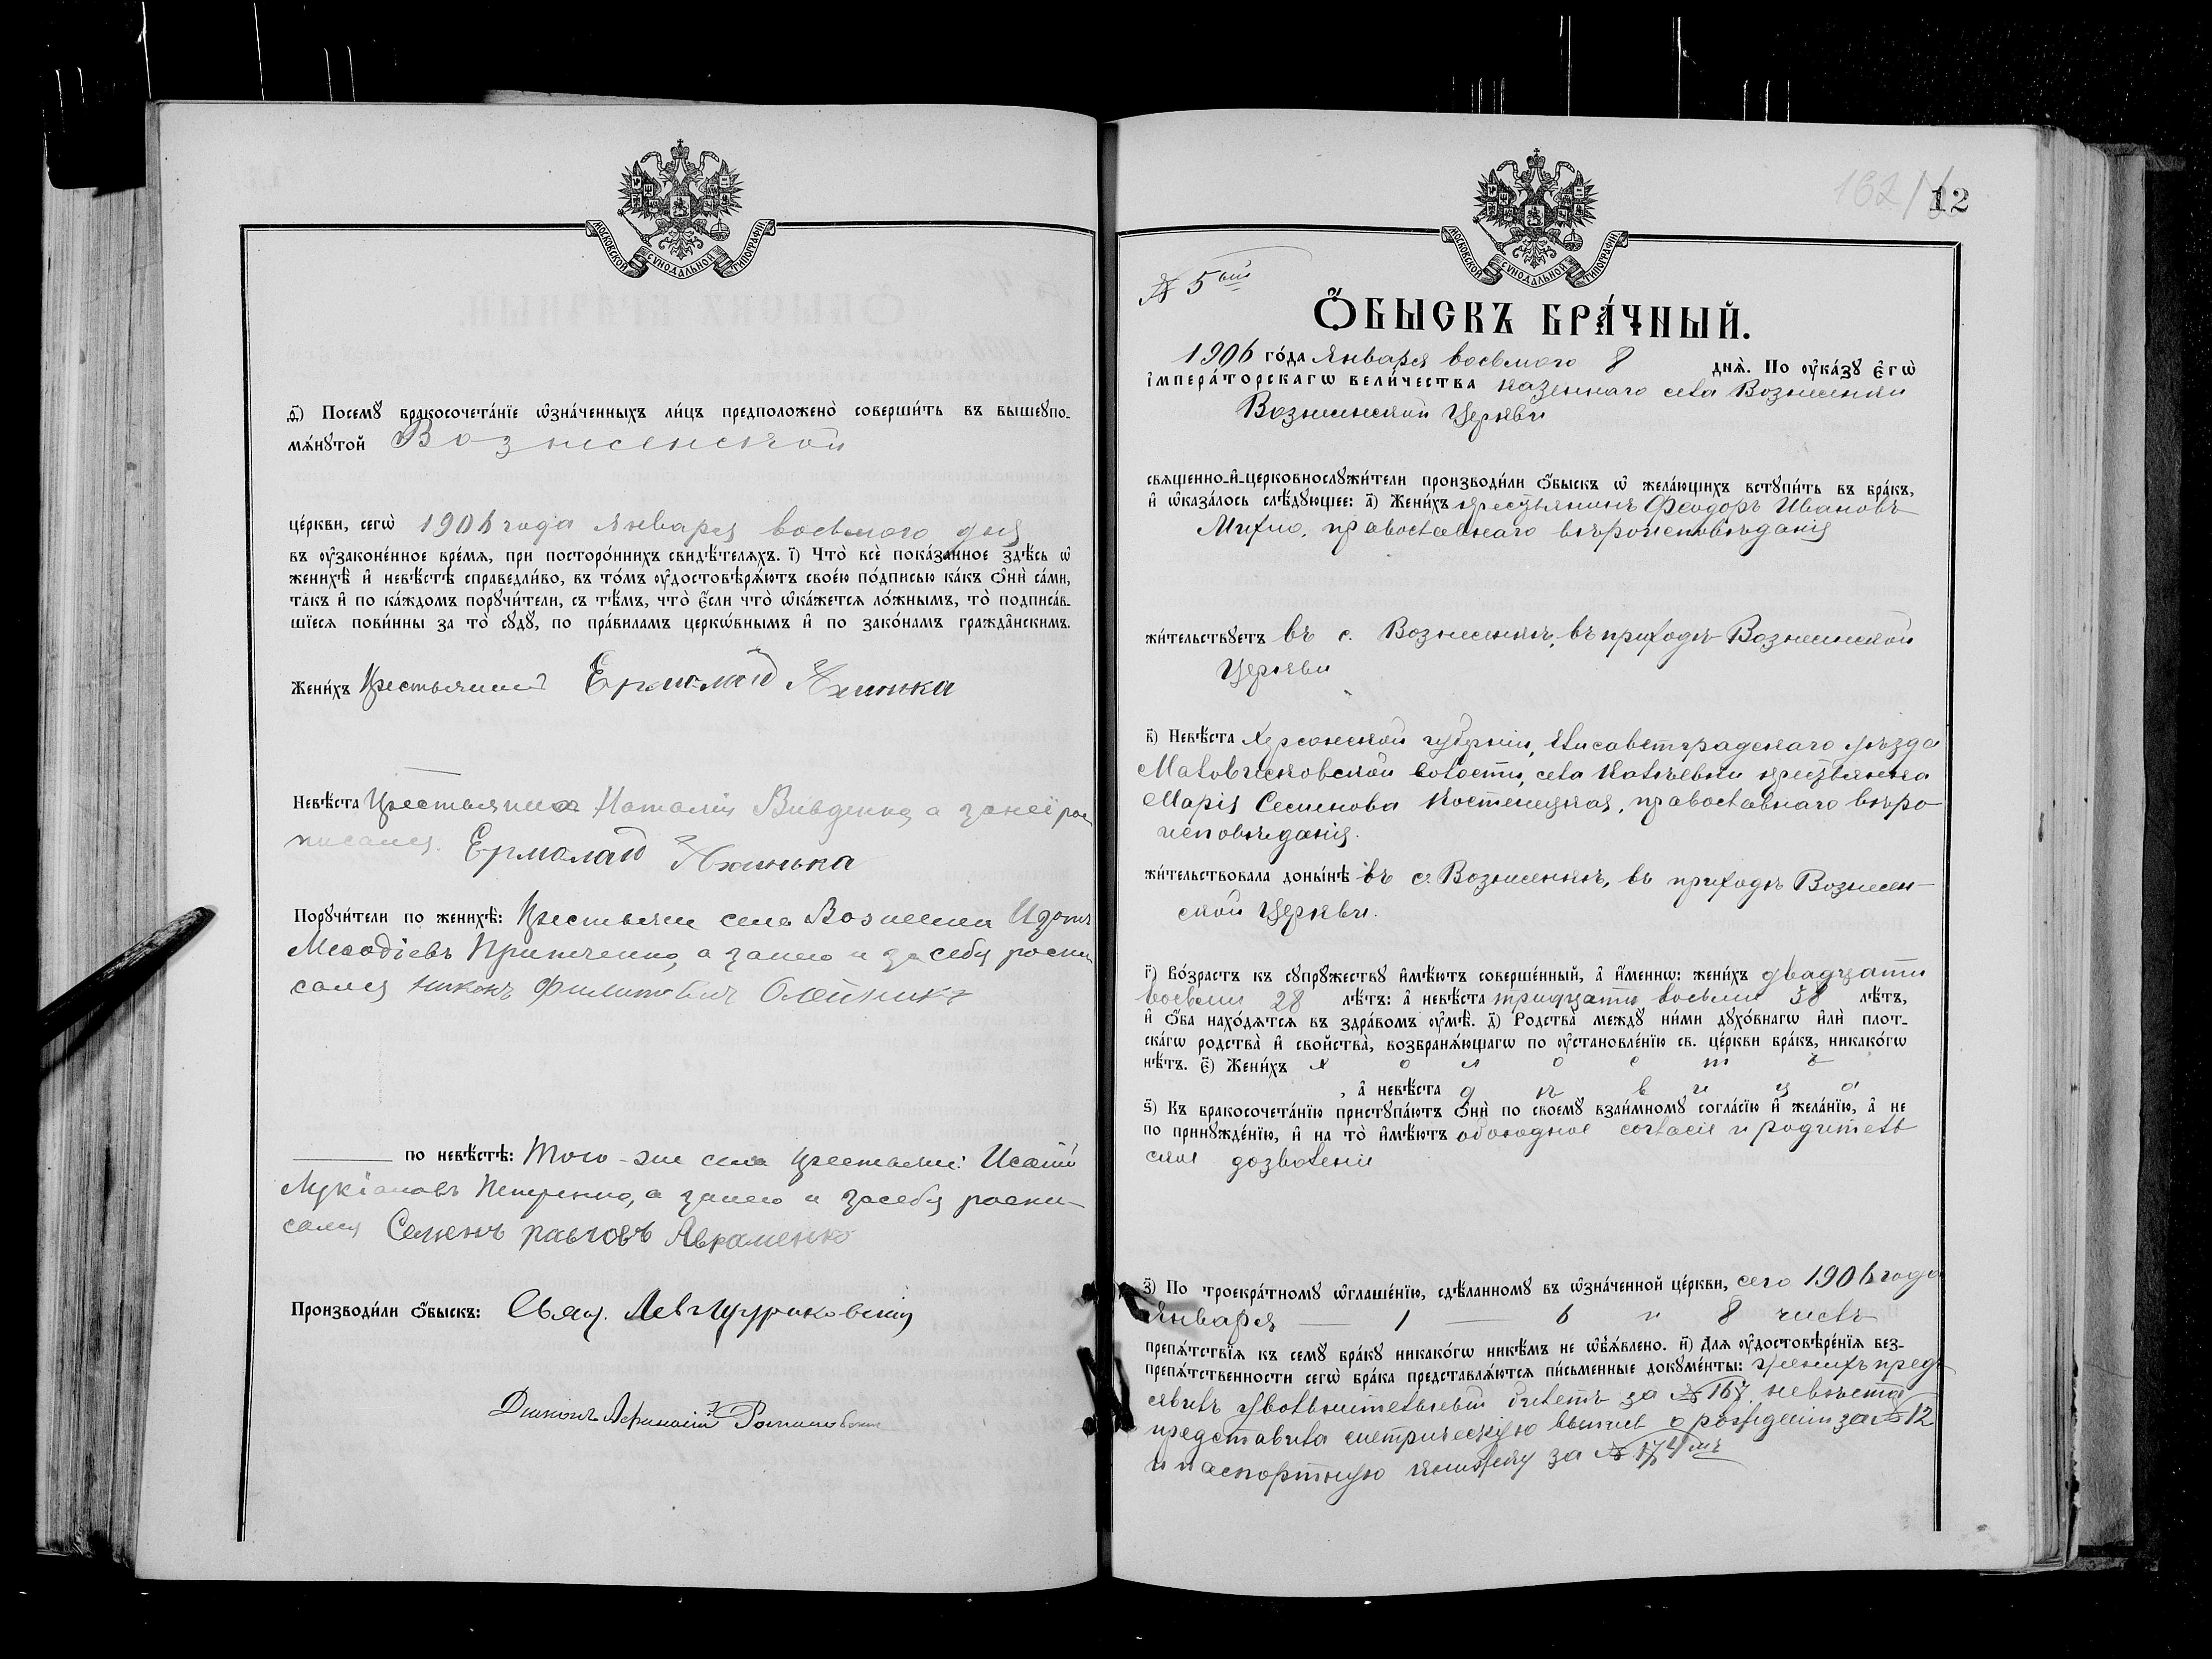 МОСКОВСКОЙ СѴНОДАЛЬНОЙ ТИПОГРАФІИ
ѳ҃) Посемꙋ̀ бракосочета́нїе ѡ҆зна́ченныхъ ли́цъ предположено̀ соверши́ть въ вышеꙋпо-
мѧ́нꙋтой Вознесенской
це́ркви, сегѡ̀ 1906 года Января восьмого дня
въ ᲂу҆законе́нное вре́мѧ, при посторо́ннихъ свидѣ́телѧхъ. і҃) Что̀ всѐ пока́занное здѣ́сь ѡ҆
женихѣ̀ и҆ невѣ́стѣ справедли́во, въ то́мъ ᲂу҆достовѣрѧ́ютъ свое́ю по́дписью ка́къ ѻ҆нѝ са́ми,
та́къ и҆ по ка́ждомъ порꙋчи́тели, съ тѣ́мъ, что̀ є҆́сли что̀ ѡ҆ка́жетсѧ ло́жнымъ, то̀ подписа́в-
шїесѧ пови́нны за то̀ сꙋдꙋ̀, по пра́виламъ церкѡ́внымъ и҆ по зако́намъ гражда̂нскимъ.
Жени́хъ Крестьянинъ Ермолай
Невѣ́ста Крестьянка Наталія а за неё рос
писался. Ермолай
Порꙋчи́тели по женихѣ̀: Крестьяне села Вознесенки
Меѳодіевъ а за него и за себя роспи
сался Никонъ Филиповичъ Олейникъ
по невѣ́стѣ: Того-же села Крестьяне: Исаій
Лукіановъ Петренко, а за него и за себя роспи-
сался Семенъ Павловъ Авраменко
Производи́ли ѻ҆́быскъ: Свящ. Левъ
Діаконъ Афанасій
12
МОСКОВСКОЙ СѴНОДАЛЬНОЙ ТИПОГРАФІИ
№ 5ый
Ѻ҆́БЫСКЪ БРА́ЧНЫЙ.
1906 го́да Января восьмого 8 днѧ̀. По ᲂу҆ка́зꙋ є҆гѡ̀
і҆мпера́торскагѡ вели́чества казеннаго села Вознесенки
Вознесенской Церкви
свѧщенно-и҆-церковнослꙋжи́тели производи́ли ѻ҆́быскъ ѡ҆ жела́ющихъ встꙋпи́ть въ бра́къ,
и҆ ѡ҆каза́лось слѣ́дꙋющее: а҃) Жени́хъ крестьянинъ Ѳеодоръ Ивановъ
православнаго вѣроисповѣданія
жи́тельствꙋетъ въ с. Вознесенкѣ, въ приходѣ Вознесенской
Церкви
в҃) Невѣ́ста Херсонской губерніи, Елисаветградскаго уѣзда
Маловисковской волости, села крестьянка
Марія Семенова Костенецкая, православнаго вѣро-
исповѣданія.
жи́тельствовала доны́нѣ въ с. Вознесенкѣ, въ приходѣ Вознесен-
ской Церкви.
г҃) Во́зрастъ къ сꙋпрꙋ́жествꙋ и҆мѣ́ютъ соверше́нный, а҆ и҆́меннѡ: жени́хъ двадцати
восьми 28 лѣ́тъ: а҆ невѣ́ста тридцати восьми 38 лѣ́тъ,
и҆ ѻ҆́ба нахо́дѧтсѧ въ здра́вомъ ᲂу҆мѣ̀. д҃) Родства̀ междꙋ̀ ни́ми дꙋхо́внагѡ и҆лѝ плот-
ска́гѡ родства̀ и҆ сво́йства, возбранѧ́ющагѡ по ᲂу҆становле́нїю св. це́ркви бра́къ, никако́гѡ
нѣ́тъ. є҃) Жени́хъ х о л о с т ъ
, а҆ невѣ́ста д ѣ в и ц а
ѕ҃) Къ бракосочета́нїю пристꙋпа́ютъ ѻ҆нѝ по своемꙋ̀ взаи́мномꙋ согла́сїю и҆ жела́нїю, а҆ не
по принꙋжде́нїю, и҆ на то̀ и҆мѣ́ютъ обоюдное согласіе и родитель
ское дозволеніе
з҃) По троекра́тномꙋ ѡ҆глаше́нїю, сдѣ́ланномꙋ въ ѡ҆зна́ченной це́ркви, сего 1906 года
Января — 1 — 6 и 8 числъ
препѧ́тствїѧ къ семꙋ̀ бра́кꙋ никако́гѡ никѣ́мъ не ѡ҆б̾ѧ́влено. и҃) Длѧ̀ ᲂу҆достовѣре́нїѧ без-
препѧ́тственности сегѡ̀ бра́ка представлѧ́ютсѧ пи́сьменные докꙋме́нты: женихъ предъ
явилъ увольнительный билетъ за № 167 невѣста
представила метрическую выпись о рожденіи за № 12
и паспортную книжку за № 174мъ